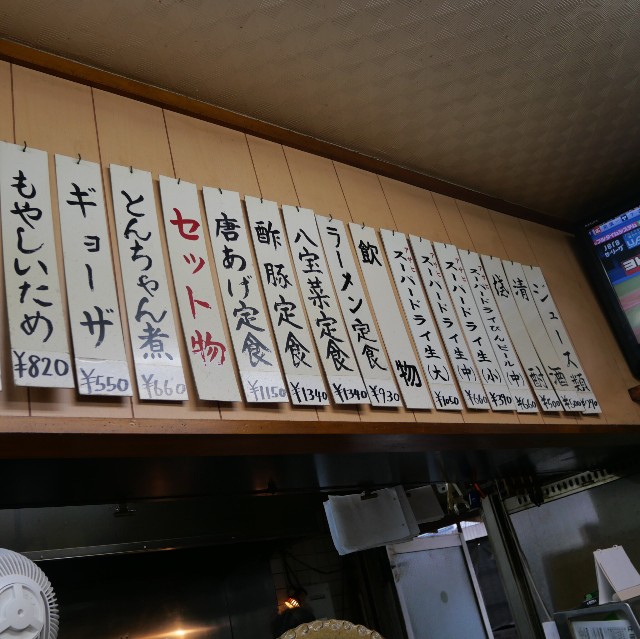 もやしいため
¥820
ギョーザ
¥550
とんちゃん煮
¥660
セット物
唐あげ定食
¥1150
酢豚定食
¥1340
八宝菜定食
¥1390
ラーメン定食
¥930
飲物
スーパードライ生(大)
¥1050
スーパードライ生(中)
¥660
スーパードライ生(小)
¥390
スーパードライびんビール(中)
¥660
焼酎
¥500
清酒
ジュース類